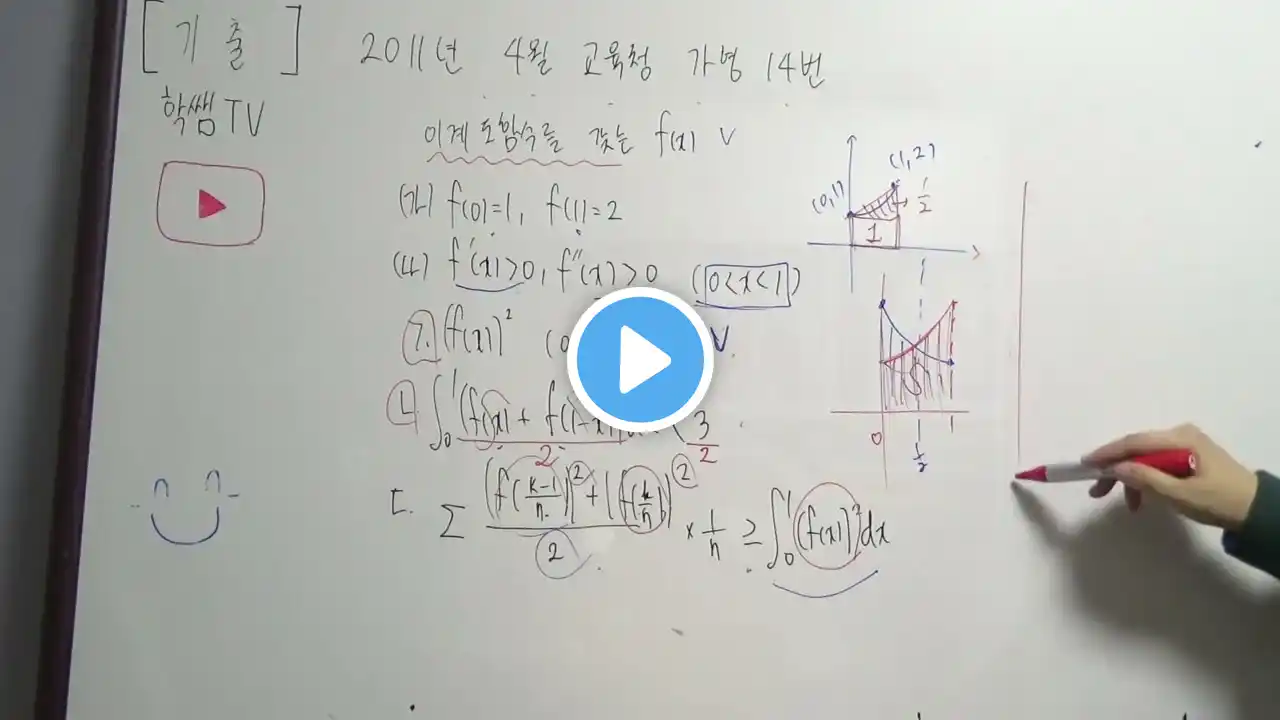 [기출] 2011년 4월 교육청 가형 14번
학쌤TV
이계도함수를 갖는 f(x)
(가) f(0)=1, f(1)=2
(나) f'(x)>0, f''(x)>0 (0<x<1)
ㄱ. (f(x))² (0
ㄴ ∫₀¹ (f(x) + f(1-x)) < 3
2 2
ㄷ. ∑ (f((k-1)/n))² + (f(k/n))² / 2 × 1/n ≥ ∫₀¹ (f(x))² dx
(0,1)
(1,2)
1/2
1
S
0
1/2
1